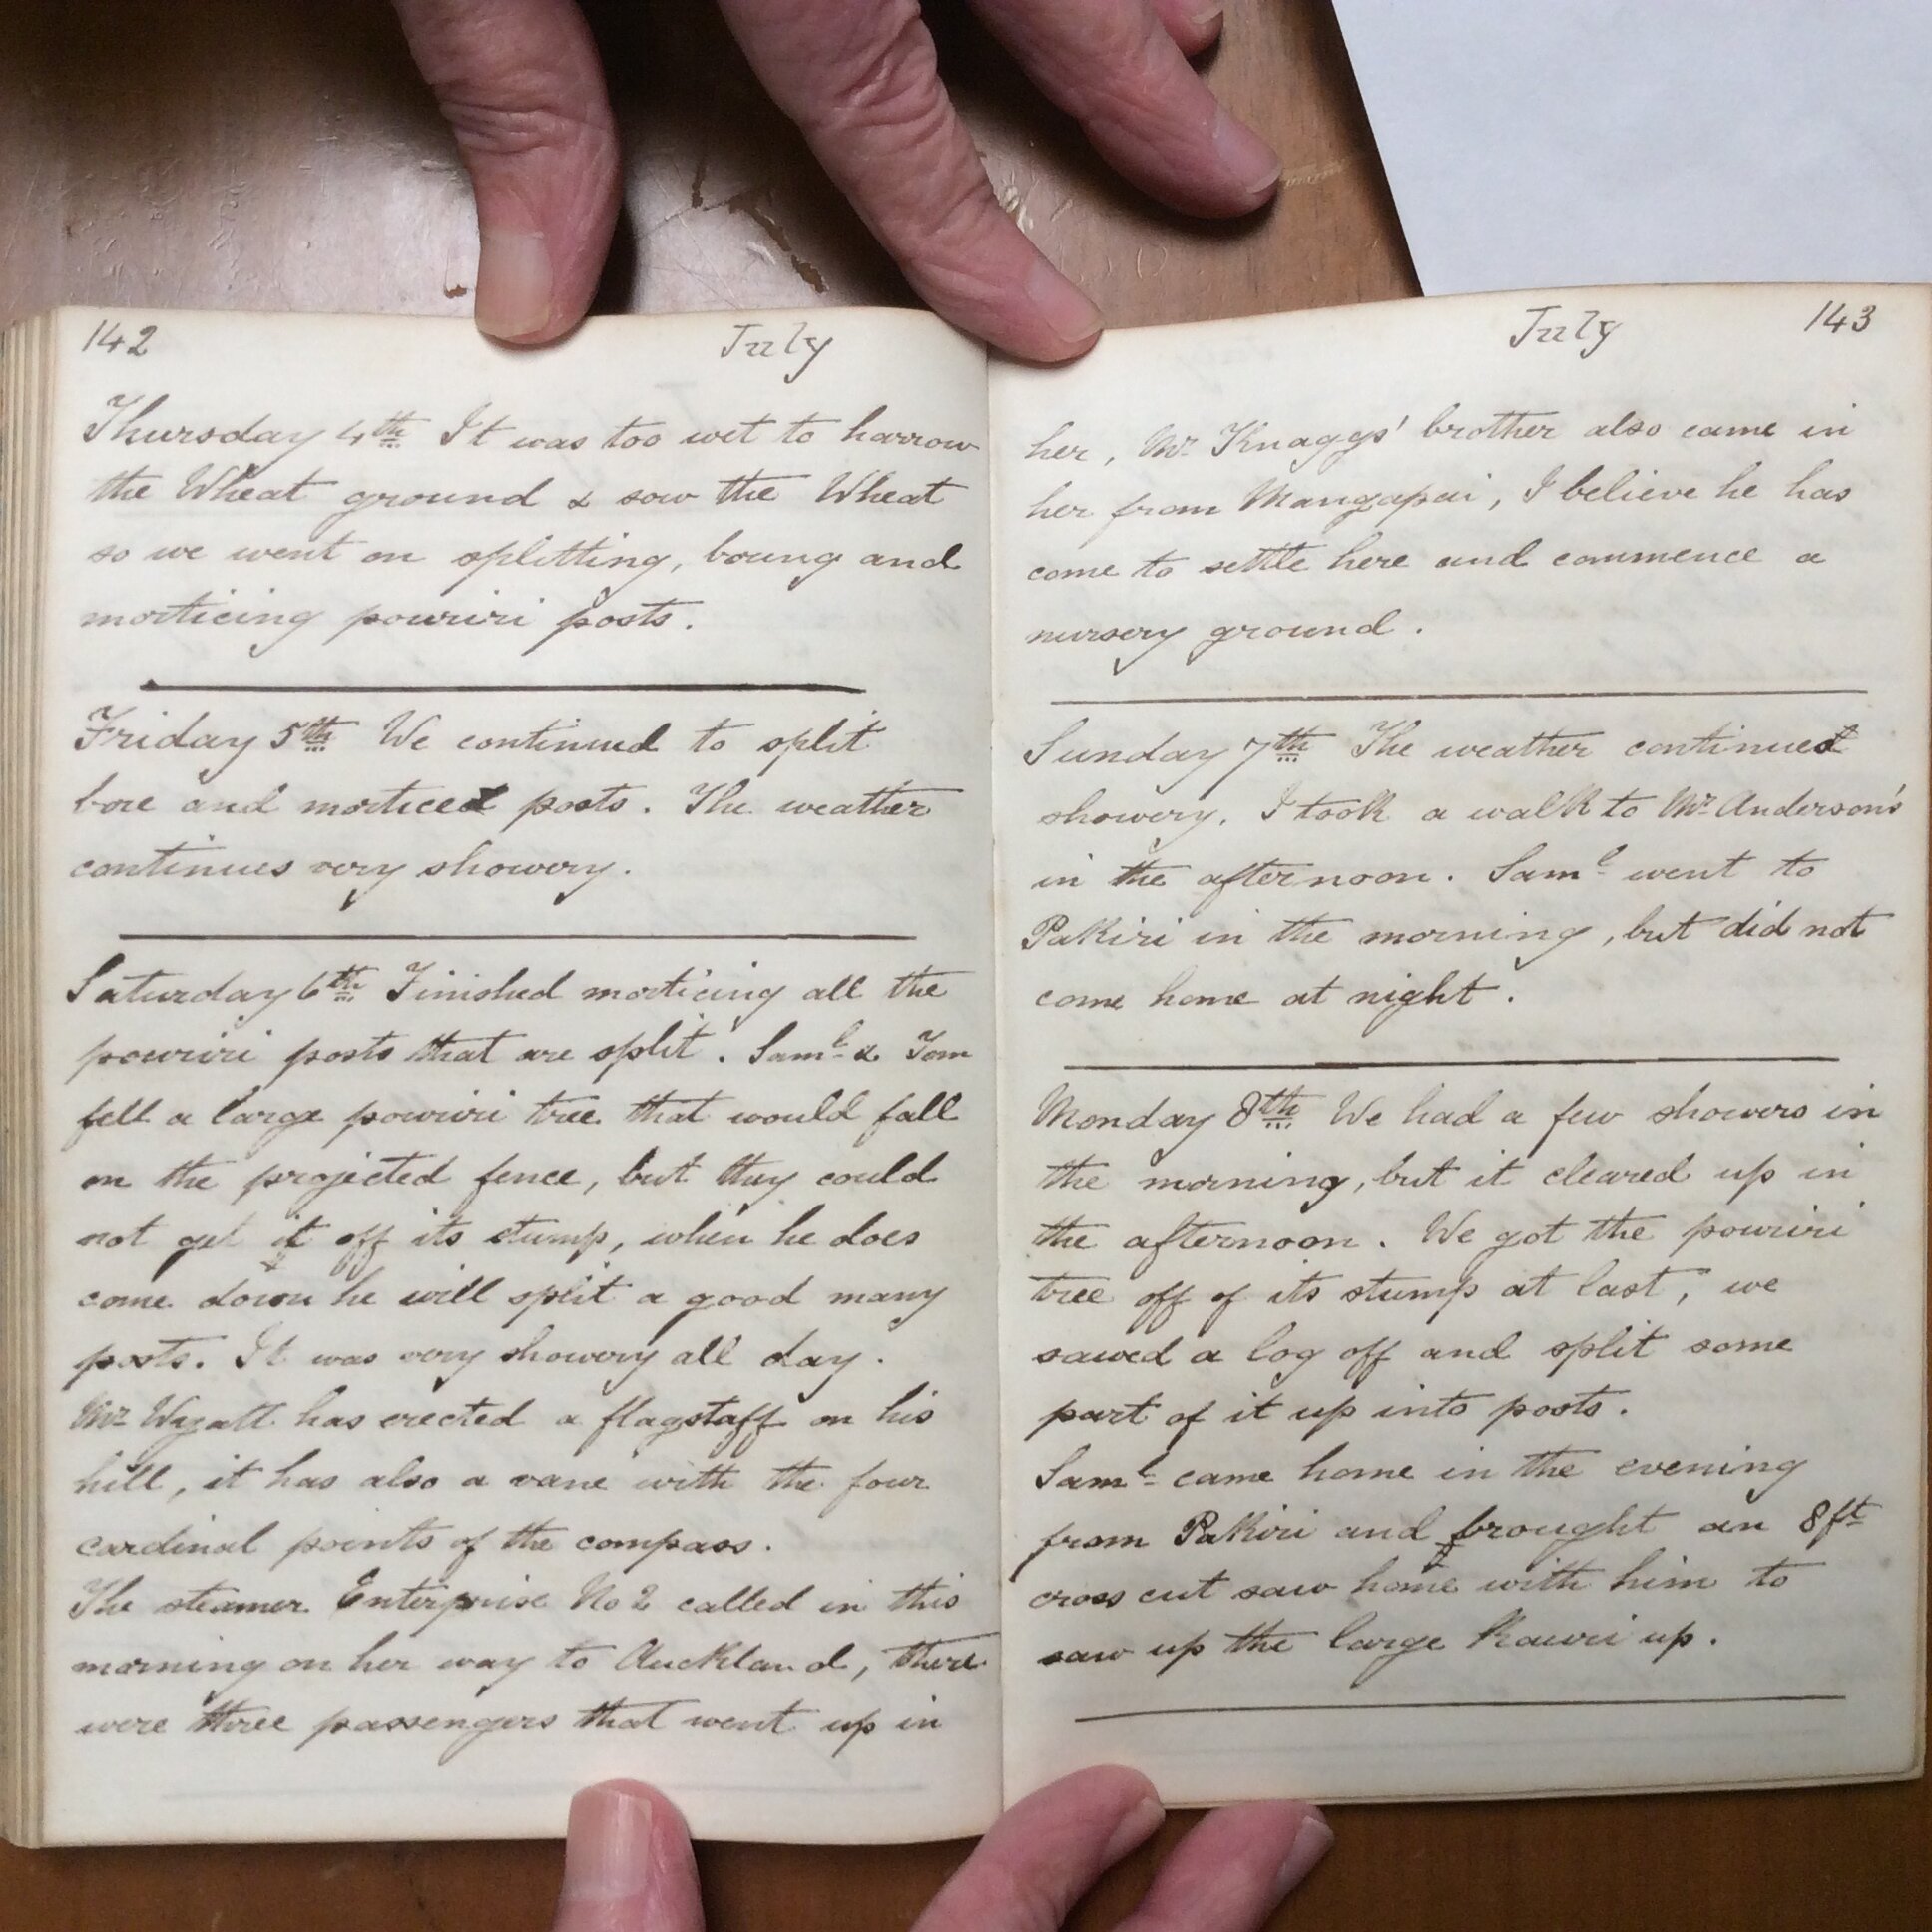 142 July
Thursday 4th It was too wet to harrow
the Wheat ground & sow the Wheat
so we went on splitting, boring and
morticing powriri posts.
Friday 5th We continued to split
bore and morticed posts. The weather
continues very showery.
Saturday 6th Finished morticing all the
powriri posts that are split. Saml & Tom
fell a large powriri tree that would fall
on the projected fence, but they could
not get it off its stump, when he does
come down he will split a good many
posts. It was very showery all day.
Mr Wyatt has erected a flagstaff on his
hill, it has also a vane with the four
cardinal points of the compass.
The steamer Enterprise No 2 called in this
morning on her way to Auckland, there
were three passengers that went up in
July 143
her, Mr Knaggs' brother also came in
her from Mangapai, I believe he has
come to settle here and commence a
nursery ground.
Sunday 7th The weather continued
showery. I took a walk to Mr Anderson's
in the afternoon. Saml went to
Pakiri in the morning, but did not
come home at night.
Monday 8th We had a few showers in
the morning, but it cleared up in
the afternoon. We got the powriri
tree off of its stump at last, we
sawed a log off and split some
part of it up into posts.
Saml came home in the evening
from Pakiri and brought an 8ft
cross cut saw home with him to
saw up the large Kauri up.